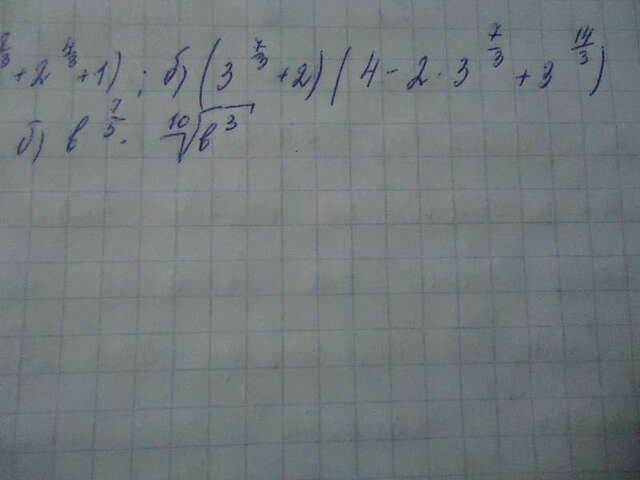 + 2^{4/3} + 1); б) (3^{7/3} + 2)(4 - 2 · 3^{7/3} + 3^{14/3})
б) в · \sqrt[10]{в^3}